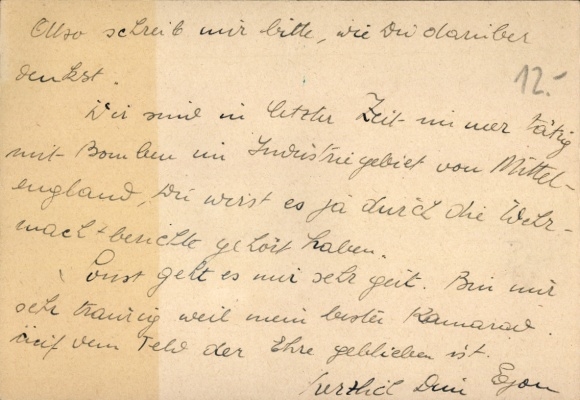 Also schreib mir bitte, wie Du darüber
denkst.
12.-
Wir sind in letzter Zeit immer tätig
mit Bomben im Industriegebiet von Mittel-
england, Du wirst es ja durch die Wehr-
machtberichte gehört haben.
Sonst geht es mir sehr gut. Bin nur
sehr traurig weil mein bester Kamerad
auf dem Feld der Ehre geblieben ist.
herzlich Dein Egon